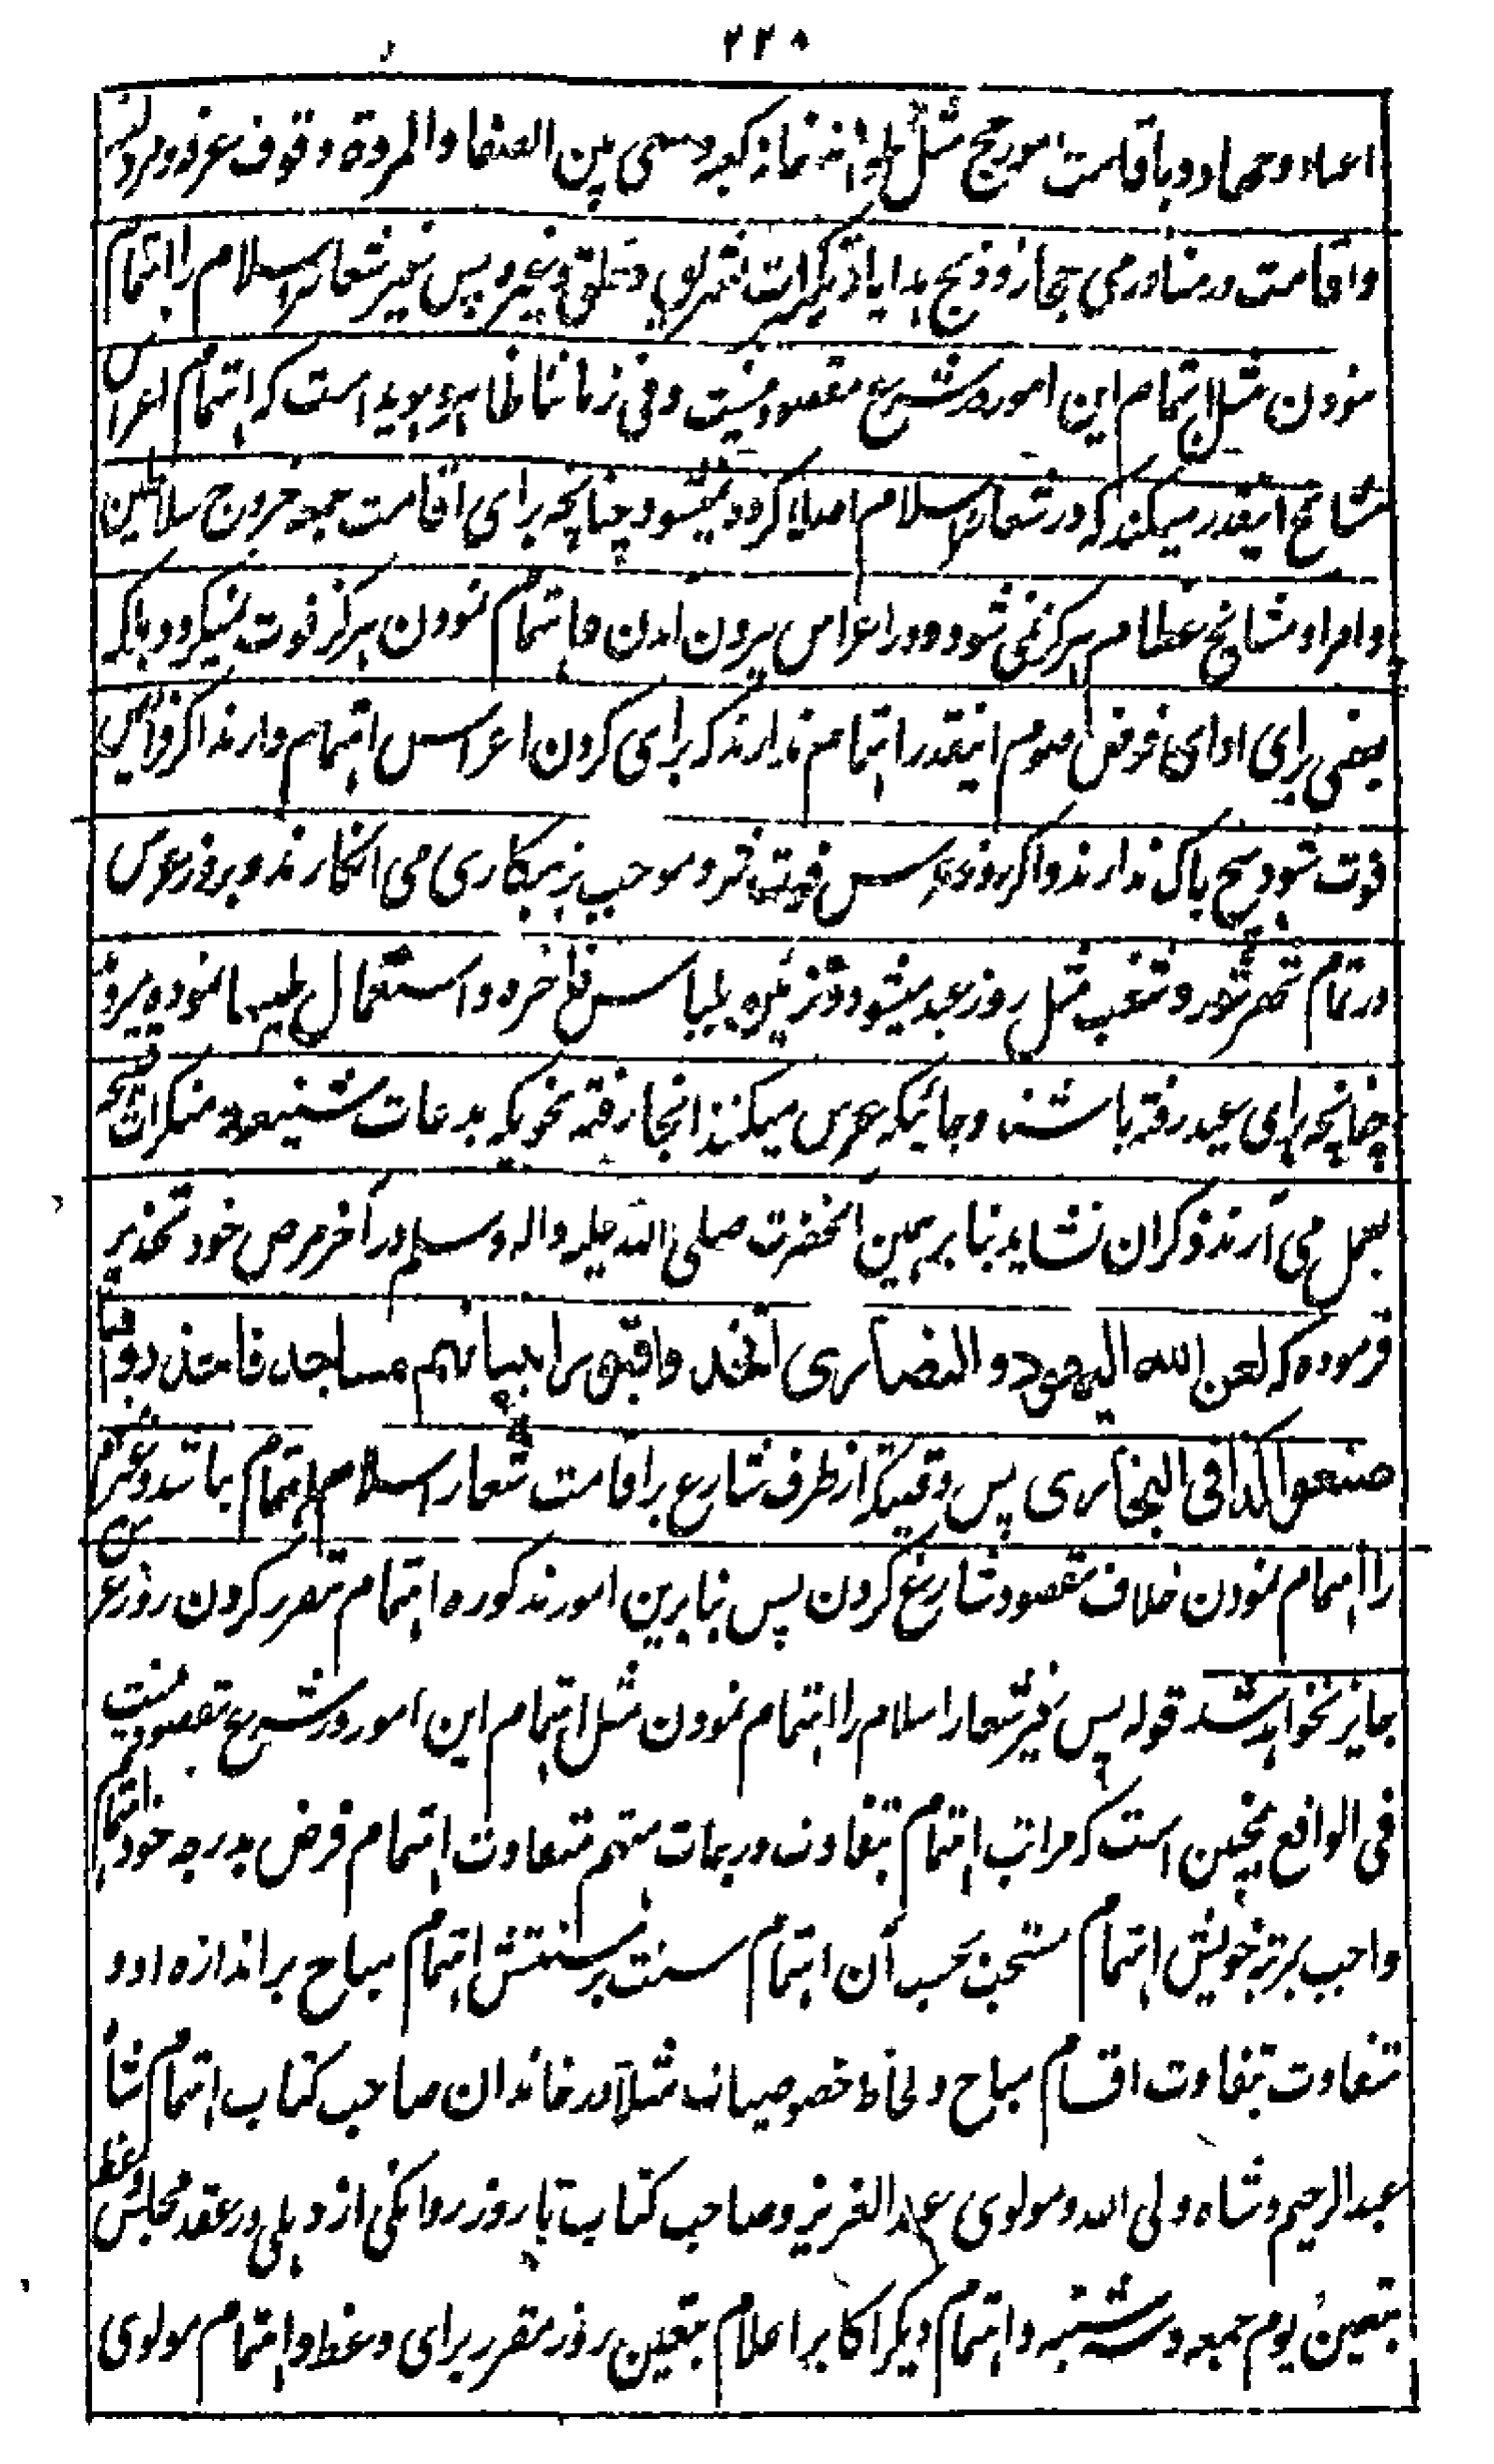 ۲۲۰
اعیاد و جهاد و باقامت امور حج مثل طواف خانه کعبه و سعی بین الصفا والمروة و وقوف عرفه و مزدلفه
واقامت در منا و رمی جمار و ذبح هدایا و تکبیرات تشریق و حلق و غیره پس غیر شعار اسلام را اهتمام
نمودن مثل اهتمام این امور در شرع مقصود نیست و فی زماننا ظاهر و هویداست که اهتمام اعراس
مشایخ اینقدر میکنند که در شعار اسلام اصلا کرده نمیشود چنانچه برای اقامت جمعه خروج سلاطین
و امرا و مشایخ عظام هرگز نمی شود و در اعراس بیرون امدن و اهتمام نمودن هرگز فوت نمیگردد بلکه
بعضی برای ادای فرض صوم اینقدر اهتمام ندارند که برای کردن اعراس اهتمام دارند اگر فرائض
فوت شود هیچ باک ندارند و اگر روز عرس فوت شود موجب بزهکاری می انگارند و بروز عرس
در تمام شهر شور و شغب مثل روز عید میشود و تزئین بلباس فاخره و استعمال طیبها نموده بیرون
چنانچه برای عید رفته باشند و جائیکه عرس میکنند انجا رفته نحویکه بدعات شنیعه منکرات قبیحه
بعمل می آرند ذکران نشاید بنابر همین انحضرت صلی الله علیه واله وسلم در آخر مرض خود تحذیر
فرموده که لعن الله الیهود و النصاری اتخذوا قبور انبیائهم مساجد فاحذروا
صنعوا کذا فی البخاری پس وقتیکه از طرف شارع بر اقامت شعار اسلام اهتمام باشد و غیر
را اهتمام نمودن خلاف مقصود شارع کردن پس بنابرین امور مذکوره اهتمام مقرر کردن روز عرس
جایز نخواهد شد قوله پس غیر شعار اسلام را اهتمام نمودن مثل اهتمام این امور در شرع مقصود نیست
فی الواقع همچنین است که مراتب اهتمام بتفاوت درجات مهتم متفاوت اهتمام فرض بدرجه خود اهتمام
واجب بمرتبه خویش اهتمام مستحب بحسب آن اهتمام سنت بر سنتش اهتمام مباح بر اندازه او و
متفاوت بتفاوت اقسام مباح و لحاظ خصوصیات مثلا در خاندان صاحب کتاب اهتمام شاه
عبد الرحیم و شاه ولی الله و مولوی عبد العزیز و صاحب کتاب تا روز روانگی از دهلی در عقد مجلس وعظ
بتعین یوم جمعه و سه شنبه و اهتمام دیگر اکابر اعلام بتعین روز مقرر برای وعظ و اهتمام مولوی